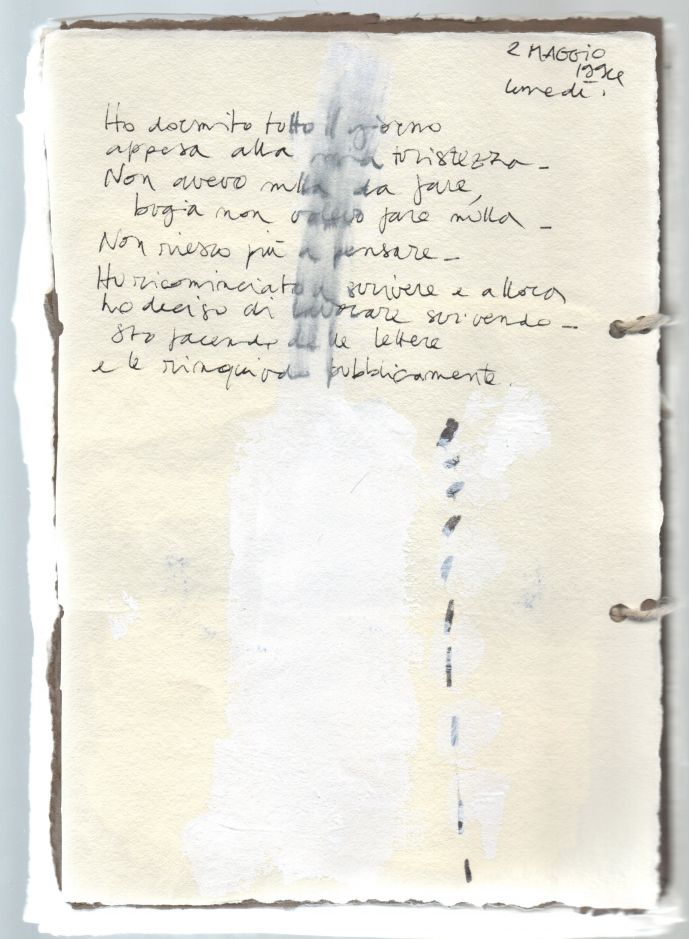 2 MAGGIO
1994
lunedì.
Ho dormito tutto il giorno
appesa alla mia tristezza –
Non avevo nulla da fare,
bugia non volevo fare nulla –
Non riesco più a pensare –
Ho ricominciato a scrivere e allora
ho deciso di lavorare scrivendo –
sto facendo delle lettere
e le rinchiudo pubblicamente.